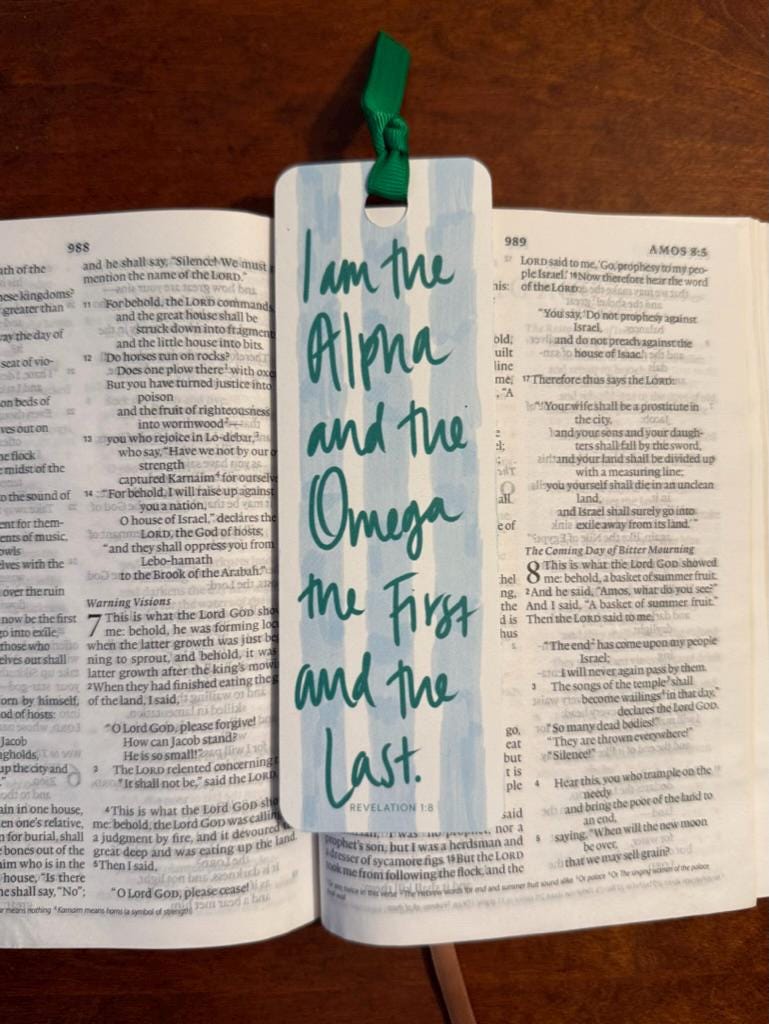 988
ath of the
these kingdoms?
greater than
ay the day of
seat of vio-
on beds of
ves out on
he flock
e midst of the
o the sound of
ent for them-
ents of music,
owls
elves with the
over the ruin
now be the first
go into exile,
those who
elves out shall
orn by himself,
od of hosts:
Jacob
gholds,
up the city and
ain in one house,
en one's relative,
for burial, shall
bones out of the
im who is in the
house, "Is there
he shall say, "No";
and he shall say, "Silence! We must
mention the name of the LORD."
11 For behold, the LORD commands
and the great house shall be
struck down into fragmen
and the little house into bits.
12 Do horses run on rocks?
Does one plow there¹ with oxe
But you have turned justice into
poison
and the fruit of righteousness
into wormwood²—
13 you who rejoice in Lo-debar,³
who say, "Have we not by our o
strength
captured Karnaim⁴ for ourselve
14 "For behold, I will raise up against
you a nation,
O house of Israel," declares the
LORD, the God of hosts;
"and they shall oppress you from
Lebo-hamath
to the Brook of the Arabah."
Warning Visions
7 This is what the Lord GOD sho
me: behold, he was forming loc
when the latter growth was just be
ning to sprout, and behold, it was
latter growth after the king's mowi
2 When they had finished eating the g
of the land, I said,
"O Lord GOD, please forgive!
How can Jacob stand?
He is so small!"
3 The LORD relented concerning
"It shall not be," said the LORD.
4 This is what the Lord GOD sho
me: behold, the Lord GOD was calling
a judgment by fire, and it devoured
great deep and was eating up the land.
5 Then I said,
"O Lord GOD, please cease!
r means nothing ⁴ Karnaim means horns (a symbol of strength)
I am the
Alpha
and the
Omega
the First
and the
Last.
REVELATION 1:8
989
AMOS 8:5
his:
old,
uilt
line
me;
"A
all
e of
hel
ng,
the
d is
hus
go,
eat
but
t is
ple
said
nor a
prophet's son, but I was a herdsman and
a dresser of sycamore figs. 15 But the LORD
took me from following the flock, and the
LORD said to me, 'Go, prophesy to my peo-
ple Israel.' 16 Now therefore hear the word
of the LORD.
"You say, 'Do not prophesy against
Israel,
and do not preach against the
house of Isaac.'
17 Therefore thus says the LORD:
"'Your wife shall be a prostitute in
the city,
and your sons and your daugh-
ters shall fall by the sword,
and your land shall be divided up
with a measuring line;
you yourself shall die in an unclean
land,
and Israel shall surely go into
exile away from its land.'"
The Coming Day of Bitter Mourning
8 This is what the Lord GOD showed
me: behold, a basket of summer fruit.
2 And he said, "Amos, what do you see?"
And I said, "A basket of summer fruit."
Then the LORD said to me,
"The end² has come upon my people
Israel;
I will never again pass by them.
3 The songs of the temple³ shall
become wailings⁴ in that day,"
declares the Lord GOD.
"So many dead bodies!"
"They are thrown everywhere!"
"Silence!"
4 Hear this, you who trample on the
needy
and bring the poor of the land to
an end,
5 saying, "When will the new moon
be over,
that we may sell grain?